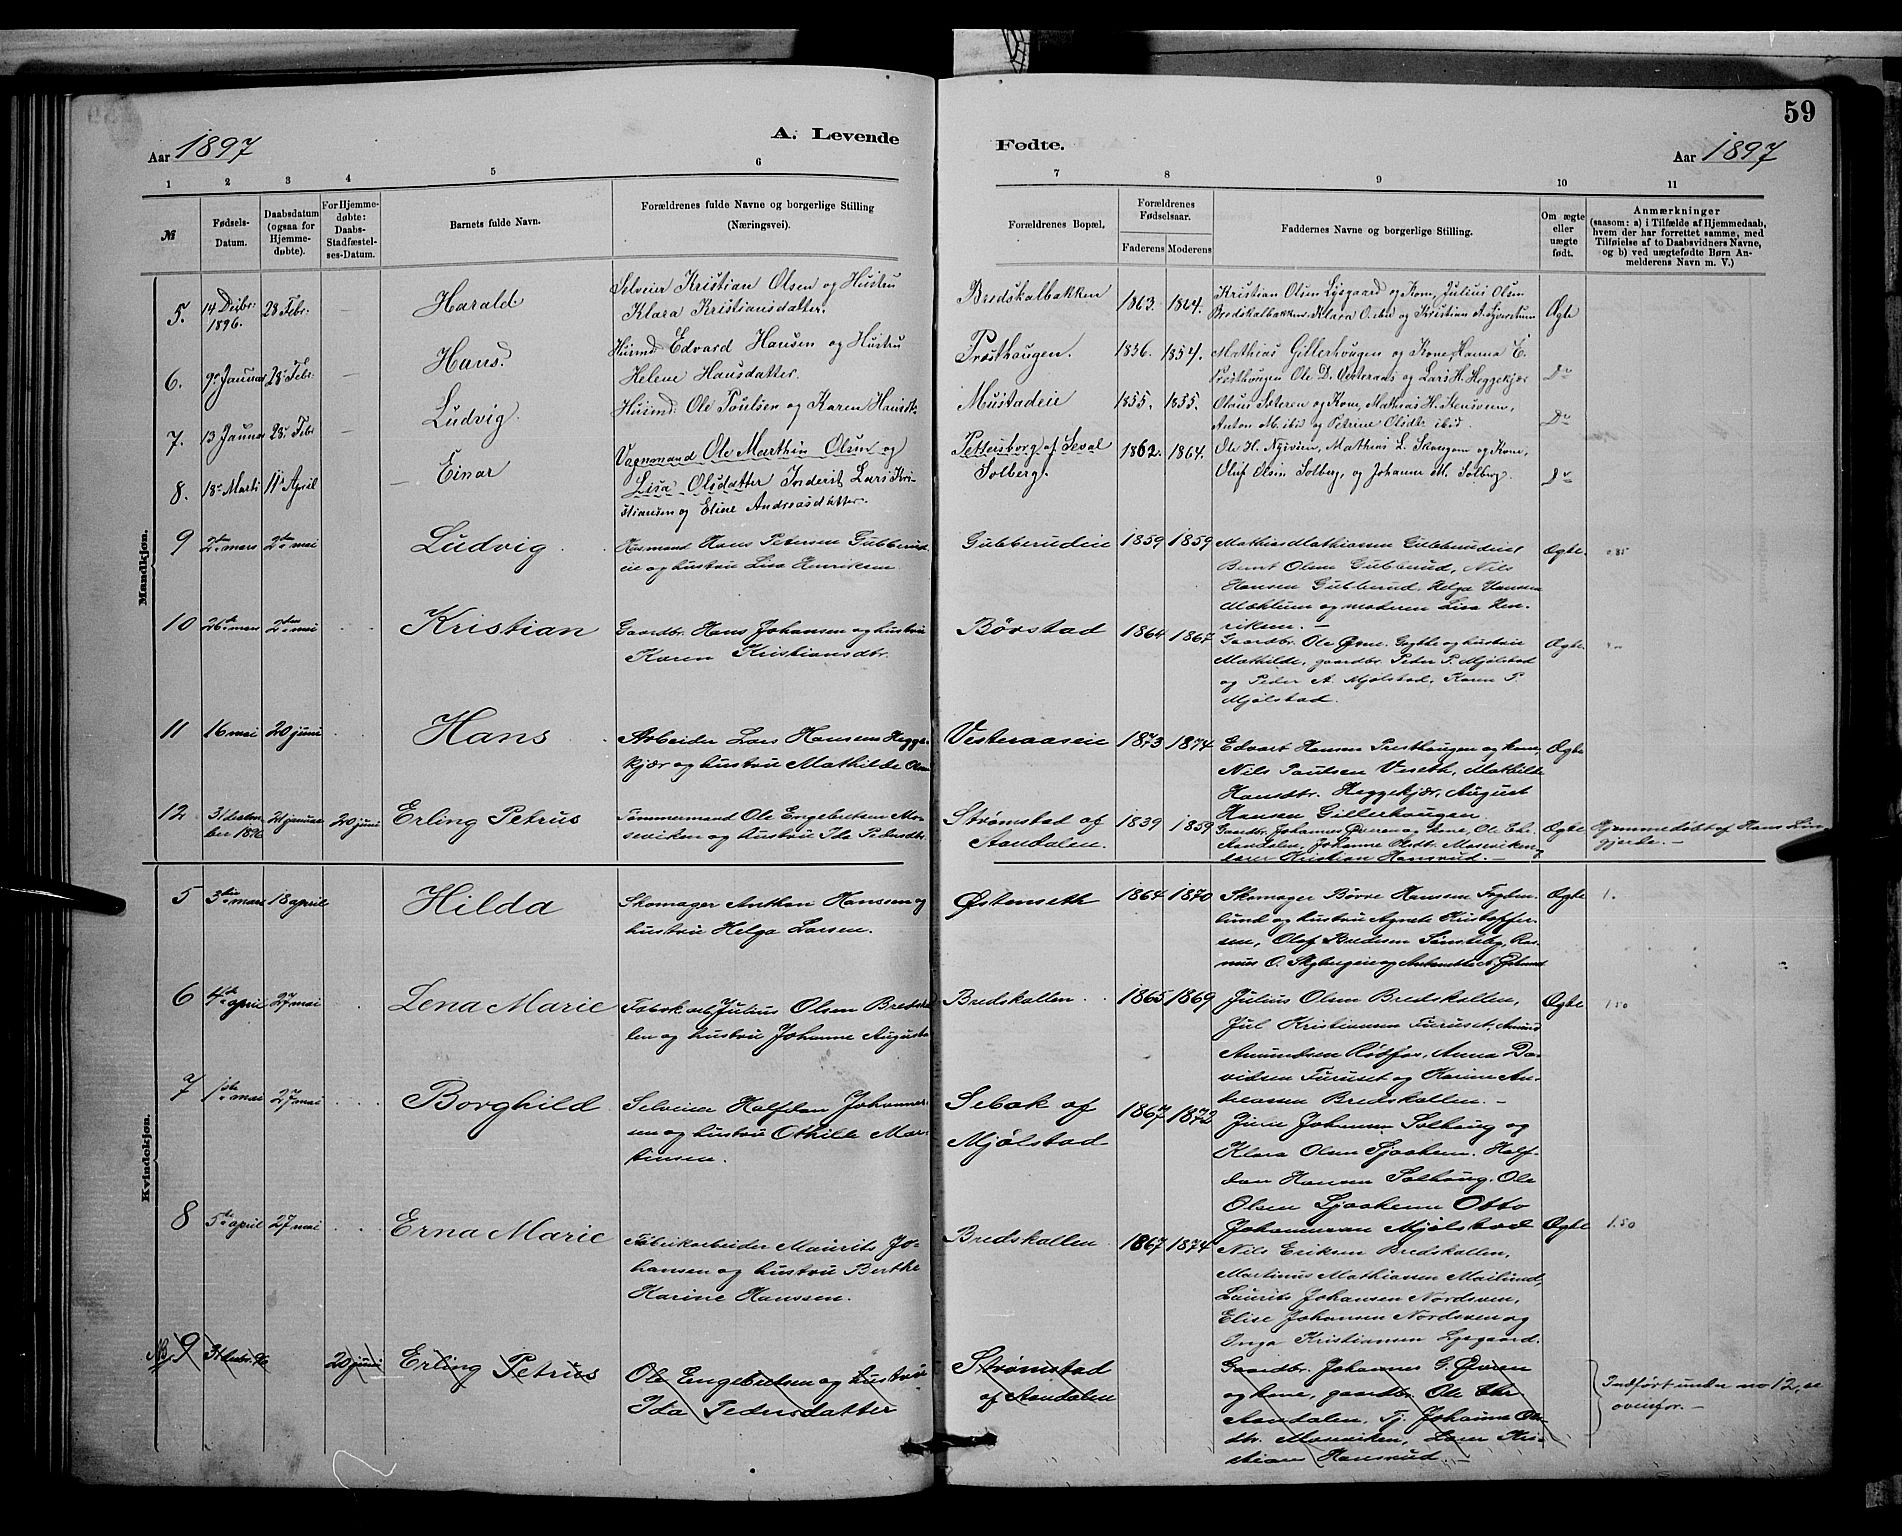 59
Aar 1897
A. Levende
Fødte.
Aar 1897
1 2 3 4 5 6 7 8 9 10 11
№
Fødsels-
Datum.
Daabsdatum
(ogsaa for
Hjemme-
døbte).
For Hjemme-
døbte:
Daabs-
Stadfæstel-
ses-Datum.
Barnets fulde Navn.
Forældrenes fulde Navne og borgerlige Stilling
(Næringsvei).
Forældrenes Bopæl.
Forældrenes
Fødselsaar.
Faderens Moderens
Faddernes Navne og borgerlige Stilling.
Om ægte
eller
uægte
født.
Anmærkninger
(saasom: a) i Tilfælde af Hjemmedaab,
hvem der har forrettet samme, med
Tilføielse af to Daabsvidners Navne,
og b) ved uægtefødte Børn An-
melderens Navn m. V.)
Mandkjøn.
5. 14 Decbr. 1896. 28 Febr. Harald
Selveier Kristian Olsen og Hustru
Klara Kristiansdatter.
Bredskalbakken 1863. 1864.
Kristian Olsen Lysgaard og Kone, Julius Olsen
Bredskalbakken, Klara O. ibd og Kristian
Ægte
6. 9 Januar 28 Febr. Hans.
Husmd Edvard Hansen og Hustru
Helene Hansdatter.
Prosthaugen. 1856. 1854.
Mathias Gillerhaugen og Kone, Hanna E.
Prosthaugen Ole D. Vesteraas og Lars H. Heggekjær
Do
7. 13 Januar 28 Febr Ludvig.
Husmd: Ole Poulsen og Karen Hansdt.
Mustadeie 1855. 1855.
Olaus Sæteren og Kone, Mathias H. Stensveen,
Anton M. ibid og Petrine Olsdtr ibid.
Do
8. 18 Marti 11 April Einar
Vognmand Ole Marthin Olsen og
Lisa Olsdatter Inderst Lars Kri-
stiansen og Eline Andreasdatter.
Pettersborg af Seval
Solberg. 1862. 1864.
Ole H. Nyseen, Mathias L. Skaugom og Kone,
Oluf Olsen Solberg, og Johanne M. Solberg.
Do
9 2den mars 2den mai Ludvig
Husmand Hans Petersen Gubberud-
eie og hustru Lisa Henriksen
Gubberudeie 1859 1859
Mathias Mathiassen Gubberudeie,
Bernt Olsen Gubberud, Nils
Hansen Gubberud, Helga Hansen
Mæhlum og moderen Lisa Hen-
riksen. —
Ægte. 0.85
10 26de mars 2den mai Kristian
Gaardbr. Hans Johansen og hustru
Karen Kristiansdtr.
Børstad 1864 1867
Gaardbr. Ole Øvne, Gogthe og hustru
Mathilde, gaardbr. Peder P. Mjølstad
og Peder A. Mjølstad, Karen P.
Mjølstad.
Ægte.
11 16 mai 20 juni Hans
Arbeider Lars Hansen Hegge-
kjær og hustru Mathilde Olsen
Vesteraaseie 1873 1874
Edvart Hansen Presthaugen og kone,
Nils Paulsen Veseth, Mathilde
Hansdtr. Heggekjær, August
Hansen Gillerhaugen.
Ægte
12 31 decem-
ber 1896 21 januar 20 juni Erling Petrus
Tømmermand Ole Engebretsen Mo-
seviken og hustru Ida Pedersdtr.
Strømstad af
Aandalen. 1839 1859
Gaardbr. Johannes Øveren og kone, Ole Chr.
Aandalen, Johanne Olsdtr. Moseviken og
Lars Kristian Hansrud. —
Ægte Hjemmedøbt af Hans Lun-
gjorde. —
Kvindekjøn.
5 3die mars 18 april Hilda
Skomager Anthon Hanssen og
hustru Helga Larsen.
Østenseth 1864 1870
Skomager Børre Hanssen Fyglen-
lund og hustru Agnete Kristoffer-
sen, Olaf Bredesen Sønsteby, Ras-
mus O. Skybergeie og Antonette A. Østlund
Ægte 1.
6 4de april 27 mai Lena Marie
Fabrik arb. Julius Olsen Bredskal-
len og hustru Johanne Augusta
Bredskallen. 1865 1869
Julius Olsen Bredskallen,
Jul Kristiansen Furuset, Amund
Amundsen Rødfos, Anna Da-
vidsen Furuset og Karine An-
dreasen Bredskallen. —
Ægte 1.50
7 1ste mars 27 mai Borghild
Selveier Halfdan Johannes-
sen og hustru Othilie Mar-
tinsen.
Sebak af
Mjølstad 1867 1872
Julie Johansen Solhaug og
Klara Olsen Sjaahem, Half-
dan Hansen Solhaug, Ole
Olsen Sjaahem Otto
Johannessen Mjølstad
8 5te april 27 mai Erna Marie
Fabrikarbeider Maurits Jo-
hansen og hustru Berthe
Karine Hanssen.
Bredskallen 1867 1874
Ægte 1.50
Nils Eriksen Bredskallen,
Martinus Mathiassen Mailund,
Laurits Johansen Nordsven,
Elise Johansen Nordsven og
Inga Kristiansen Lysgaard.
No 9 31 decbr. 96 20 juni Erling Petrus
Ole Engebretsen og hustru
Ida Pedersdatter
Strømstad
af Aandalen
Gaardbr. Johannes G. Øveren
og kone, gaardbr. Ole Chr.
Aandalen, Tj. Johanne Ols-
dtr. Moseviken, Lars Kri-
stian Hansrud. —
Indført under no 12, se
ovenfor. —